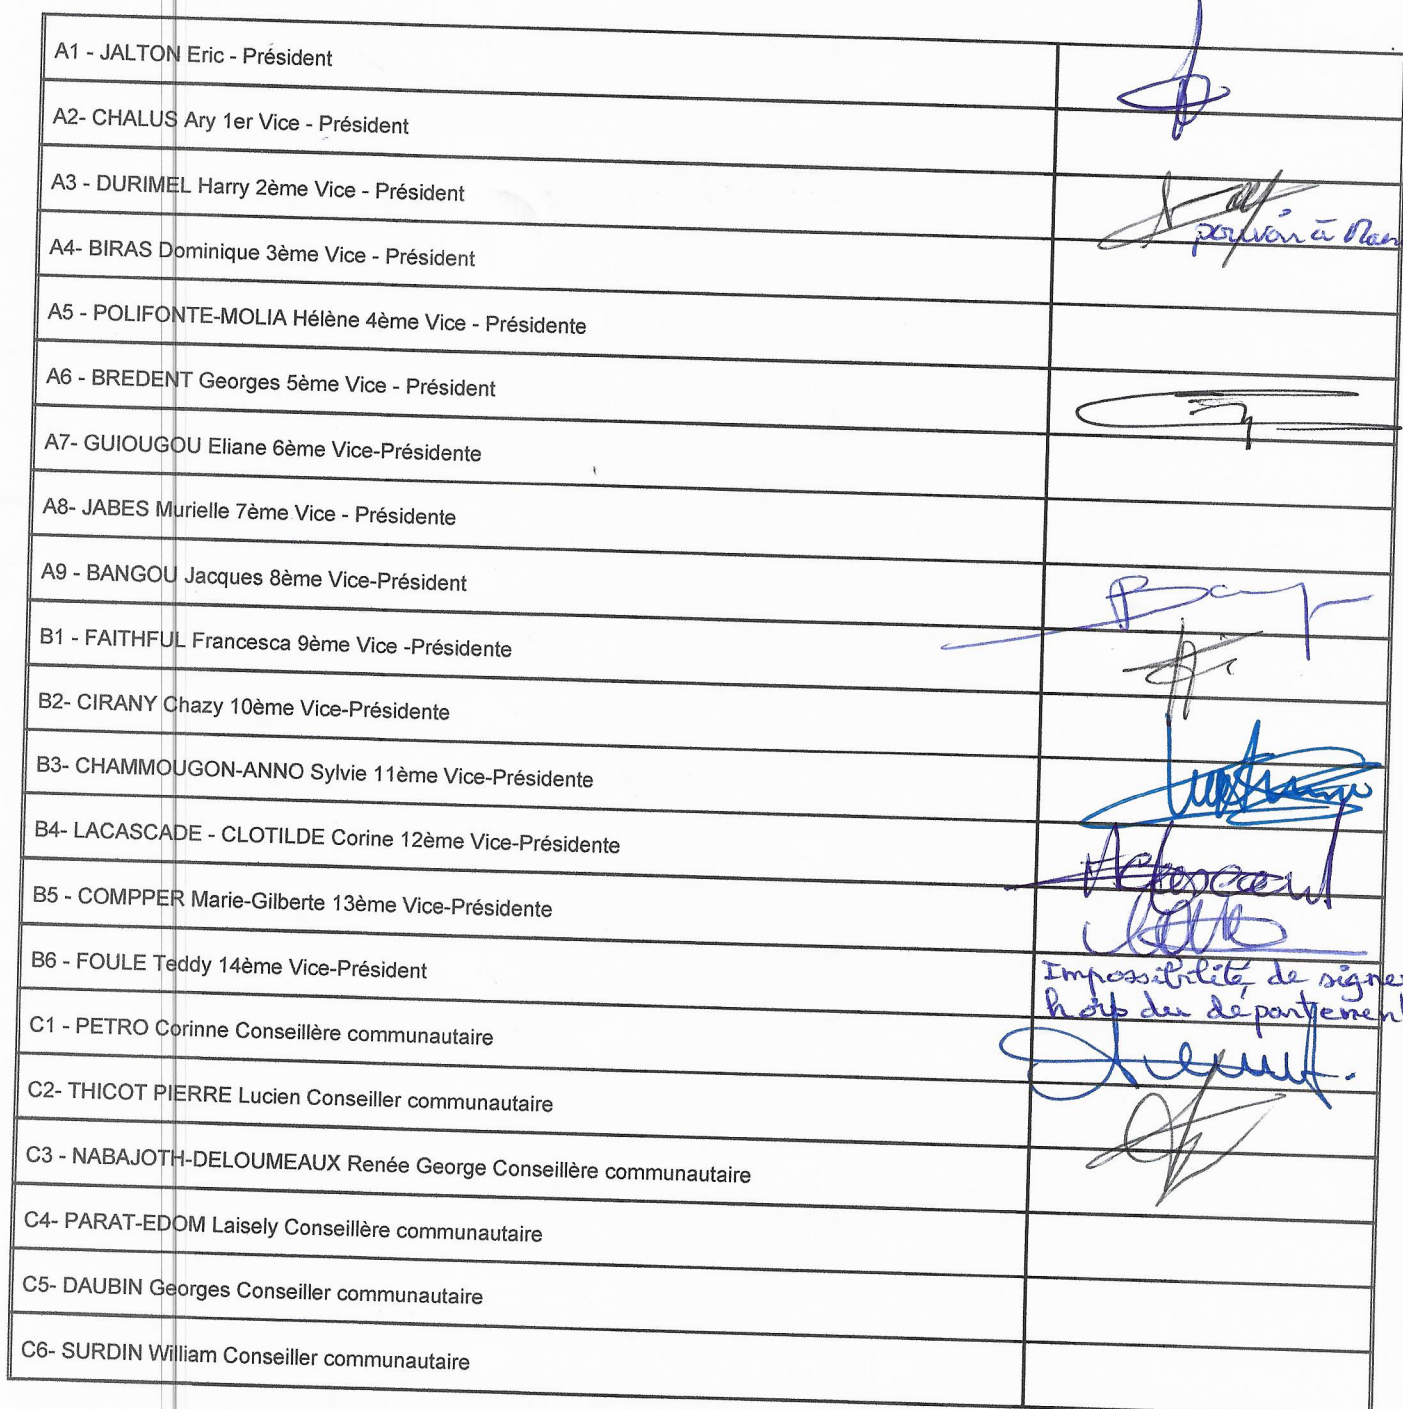 A1 - JALTON Eric - Président
A2- CHALUS Ary 1er Vice - Président
A3 - DURIMEL Harry 2ème Vice - Président
pouvoir à
A4- BIRAS Dominique 3ème Vice - Président
A5 - POLIFONTE-MOLIA Hélène 4ème Vice - Présidente
A6 - BREDENT Georges 5ème Vice - Président
A7- GUIOUGOU Eliane 6ème Vice-Présidente
A8- JABES Murielle 7ème Vice - Présidente
A9 - BANGOU Jacques 8ème Vice-Président
B1 - FAITHFUL Francesca 9ème Vice -Présidente
B2- CIRANY Chazy 10ème Vice-Présidente
B3- CHAMMOUGON-ANNO Sylvie 11ème Vice-Présidente
B4- LACASCADE - CLOTILDE Corine 12ème Vice-Présidente
B5 - COMPPER Marie-Gilberte 13ème Vice-Présidente
B6 - FOULE Teddy 14ème Vice-Président
Impossibilité de signer
hors du département
C1 - PETRO Corinne Conseillère communautaire
C2- THICOT PIERRE Lucien Conseiller communautaire
C3 - NABAJOTH-DELOUMEAUX Renée George Conseillère communautaire
C4- PARAT-EDOM Laisely Conseillère communautaire
C5- DAUBIN Georges Conseiller communautaire
C6- SURDIN William Conseiller communautaire